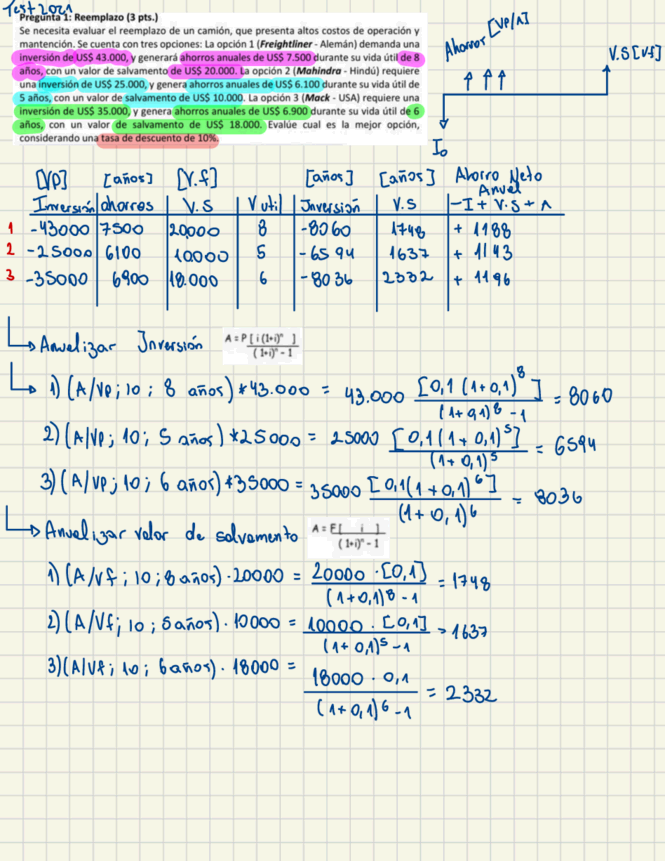 Test 2021
Pregunta 1: Reemplazo (3 pts.)
Se necesita evaluar el reemplazo de un camión, que presenta altos costos de operación y
mantención. Se cuenta con tres opciones: La opción 1 (Freightliner - Alemán) demanda una
inversión de US$ 43.000, y generará ahorros anuales de US$ 7.500 durante su vida útil de 8
años, con un valor de salvamento de US$ 20.000. La opción 2 (Mahindra - Hindú) requiere
una inversión de US$ 25.000, y genera ahorros anuales de US$ 6.100 durante su vida útil de
5 años, con un valor de salvamento de US$ 10.000. La opción 3 (Mack - USA) requiere una
inversión de US$ 35.000, y genera ahorros anuales de US$ 6.900 durante su vida útil de 6
años, con un valor de salvamento de US$ 18.000. Evalúe cual es la mejor opción,
considerando una tasa de descuento de 10%.
Ahorror [VP/A]
V.S [V.f]
I₀
[VP] [años] [V.f] [años] [años] Ahorro Neto Anual
Inversión ahorros V.S V util Inversión V.S -I + V.S + A
1 -43000 7500 20000 8 -8060 1748 + 1188
2 -25000 6100 10000 5 -6594 1637 + 1143
3 -35000 6900 18.000 6 -8036 2332 + 1196
Anualizar Inversión A = P [ i (1+i)ⁿ ] / (1+i)ⁿ - 1
1) (A/VP; 10 ; 8 años) * 43.000 = 43.000 [0,1 (1+0,1)⁸] / (1+0,1)⁸ - 1 = 8060
2) (A/VP; 10; 5 años) * 25000 = 25000 [0,1 (1+0,1)⁵] / (1+0,1)⁵ = 6594
3) (A/VP; 10; 6 años) * 35000 = 35000 [0,1(1+0,1)⁶] / (1+0,1)⁶ = 8036
Anualizar valor de salvamento A = F [ i ] / (1+i)ⁿ - 1
1) (A/Vf ; 10 ; 8 años) · 20000 = 20000 · [0,1] / (1+0,1)⁸ - 1 = 1748
2) (A/Vf; 10 ; 5 años) · 10000 = 10000 · [0,1] / (1+0,1)⁵ - 1 = 1637
3) (A/Vf; 10 ; 6 años) · 18000 = 18000 · 0,1 / (1+0,1)⁶ - 1 = 2332